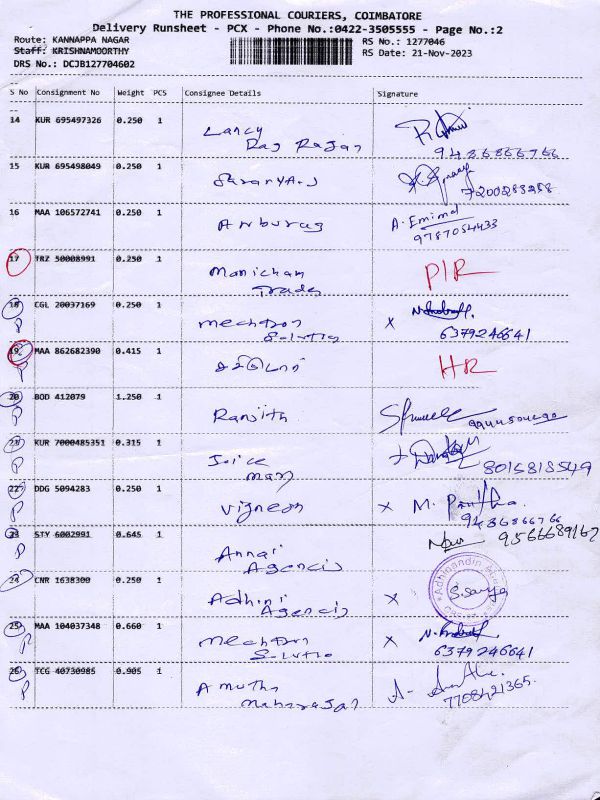 THE PROFESSIONAL COURIERS, COIMBATORE
Delivery Runsheet - PCX - Phone No.:0422-3505555 - Page No.:2
Route: KANNAPPA NAGAR RS No.: 1277046
Staff: KRISHNAMOORTHY RS Date: 21-Nov-2023
DRS No.: DCJB127704602
S No Consignment No Weight PCS Consignee Details Signature
14 KUR 695497326 0.250 1 Lancy
Raj Rajan
9486866766
15 KUR 695498049 0.250 1 Sharanya.S
7200283258
16 MAA 106572741 0.250 1 Anburaj A. Emimal
9787054433
17 TRZ 50008991 0.250 1 Manicham PIR
Trades
18 CGL 20037169 0.250 1 Mechtron x
P Solutio 6379246641
19 MAA 862682390 0.415 1 HR
P
20 BOD 412079 1.250 1 Ranjith
P
KUR 7000485351 0.315 1 Joice
P Mary 8015813549
22 DDG 5094283 0.250 1 Vignesh x M. Pavithra
P 9486866766
23 STY 6002991 0.645 1 Annai 9566689167
P Agencis
24 CNR 1638300 0.250 1 Adhini x S. Sarya
Agencis
25 MAA 104037348 0.660 1 Mechtron x
P Solutio 6379246641
26 TCG 40730985 0.905 1 Amutha
P Maharajan 7708421365.